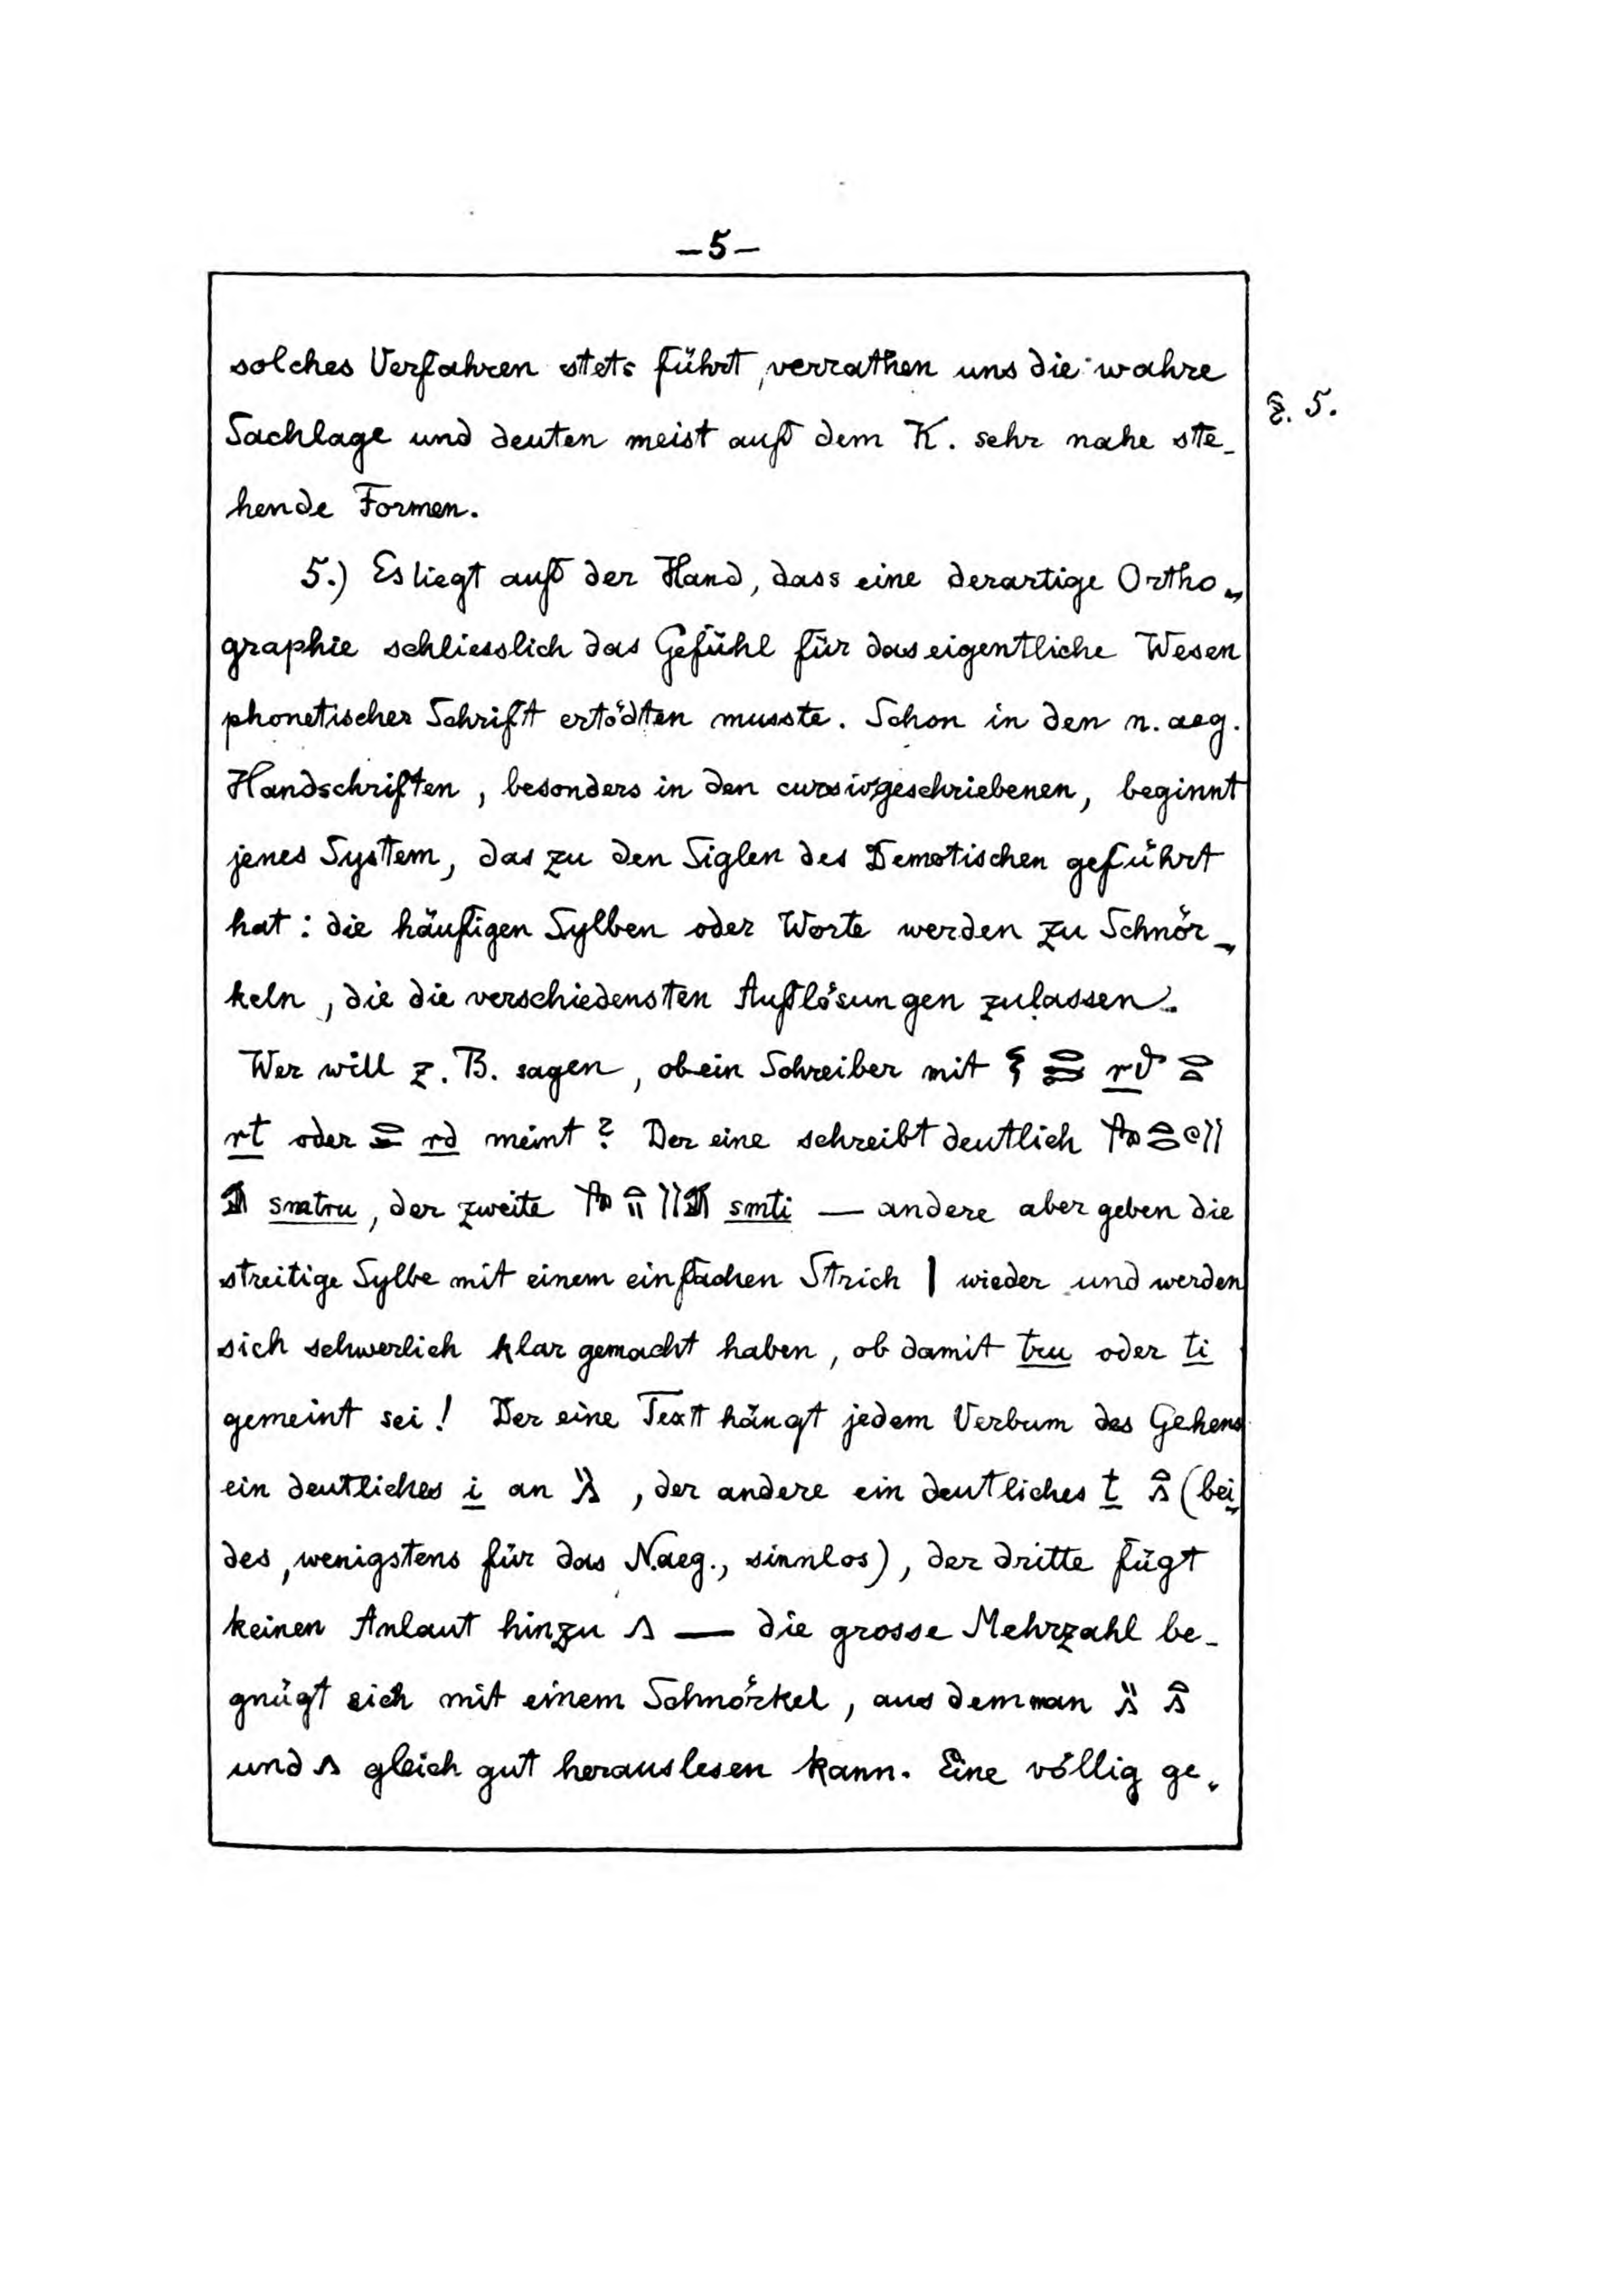 –5–
solches Verfahren stets führt, verrathen uns die wahre
§. 5.
Sachlage und deuten meist auf dem K. sehr nahe ste-
hende Formen.
5.) Es liegt auf der Hand, dass eine derartige Ortho-
graphie schliesslich das Gefühl für das eigentliche Wesen
phonetischer Schrift ertödten musste. Schon in den n. aeg.
Handschriften, besonders in den cursivgeschriebenen, beginnt
jenes System, das zu den Siglen des Demotischen geführt
hat: die häufigen Sylben oder Worte werden zu Schnör-
keln, die die verschiedensten Auflösungen zulassen.
Wer will z. B. sagen, ob ein Schreiber mit
rt oder rd meint? Der eine schreibt deutlich
smtru, der zweite smti — andere aber geben die
streitige Sylbe mit einem einfachen Strich | wieder und werden
sich schwerlich klar gemacht haben, ob damit tru oder ti
gemeint sei! Der eine Text hängt jedem Verbum des Gehens
ein deutliches i an , der andere ein deutliches t (bei-
des, wenigstens für das N.aeg., sinnlos), der dritte fügt
keinen Anlaut hinzu 𓂻 — die grosse Mehrzahl be-
gnügt sich mit einem Schnörkel, aus dem man
und 𓂻 gleich gut herauslesen kann. Eine völlig ge-